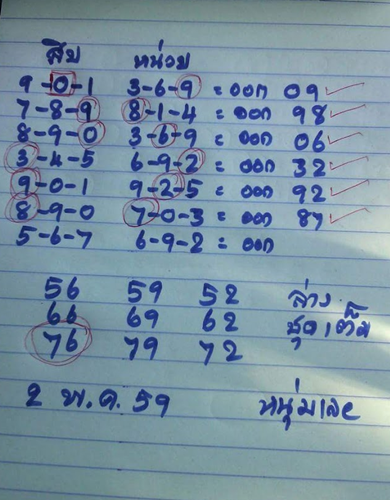 สิบ หน่วย
9-0-1 3-6-9 = ออก 09
7-8-9 8-1-4 = ออก 98
8-9-0 3-6-9 = ออก 06
3-4-5 6-9-2 = ออก 32
9-0-1 9-2-5 = ออก 92
8-9-0 7-0-3 = ออก 87
5-6-7 6-9-2 = ออก
56 59 52 ล่าง
66 69 62 ชุดเต็ม
76 79 72
2 พ.ค. 59 หนุ่มเลย